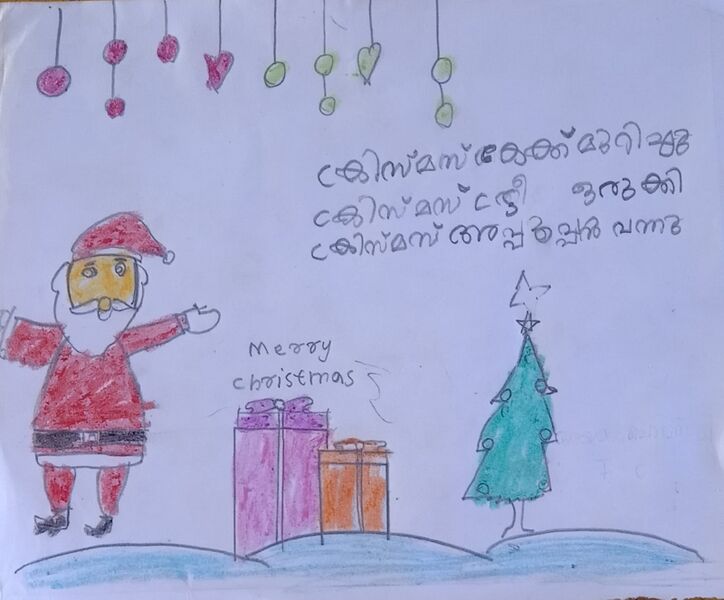 ക്രിസ്മസ് കേക്ക് മുറിച്ചു
ക്രിസ്മസ് ട്രീ ഒരുക്കി
ക്രിസ്മസ് അപ്പൂപ്പൻ വന്നു
Merry
christmas